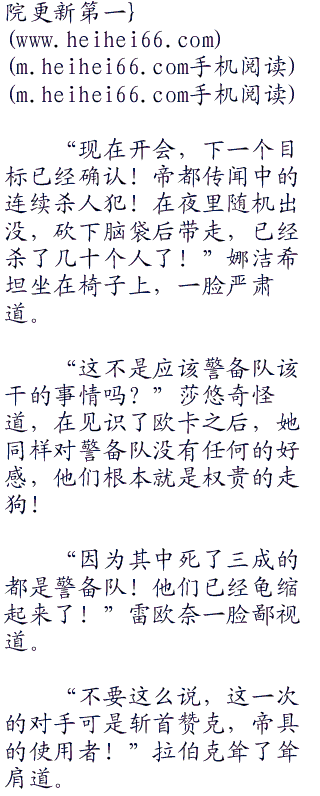 院更新第一}
(www.heihei66.com)
(m.heihei66.com手机阅读)
(m.heihei66.com手机阅读)
“现在开会，下一个目
标已经确认！帝都传闻中的
连续杀人犯！在夜里随机出
没，砍下脑袋后带走，已经
杀了几十个人了！”娜洁希
坦坐在椅子上，一脸严肃
道。
“这不是应该警备队该
干的事情吗？”莎悠奇怪
道，在见识了欧卡之后，她
同样对警备队没有任何的好
感，他们根本就是权贵的走
狗！
“因为其中死了三成的
都是警备队！他们已经龟缩
起来了！”雷欧奈一脸鄙视
道。
“不要这么说，这一次
的对手可是斩首赞克，帝具
的使用者！”拉伯克耸了耸
肩道。